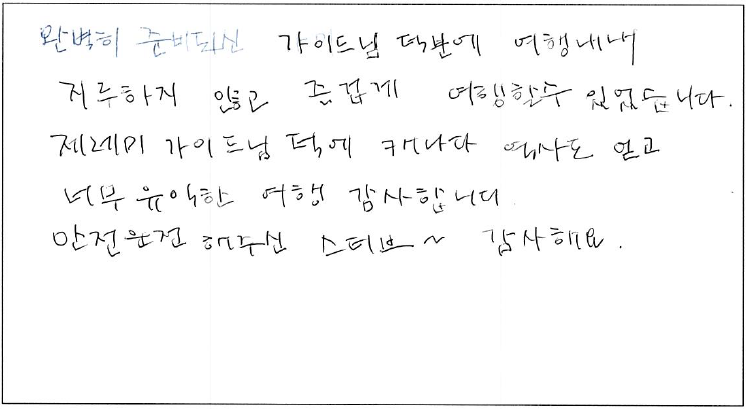 완벽히 준비되신 가이드님 덕분에 여행내내
지루하지 않고 즐겁게 여행할수 있었습니다.
제레미 가이드님 덕에 캐나다 역사도 얻고
너무 유익한 여행 감사합니다
안전운전 해주신 스티브~ 감사해요.